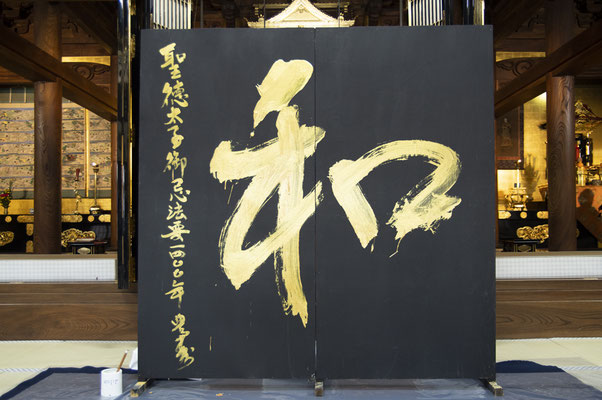 和
聖徳太子御忌法要一四〇〇年